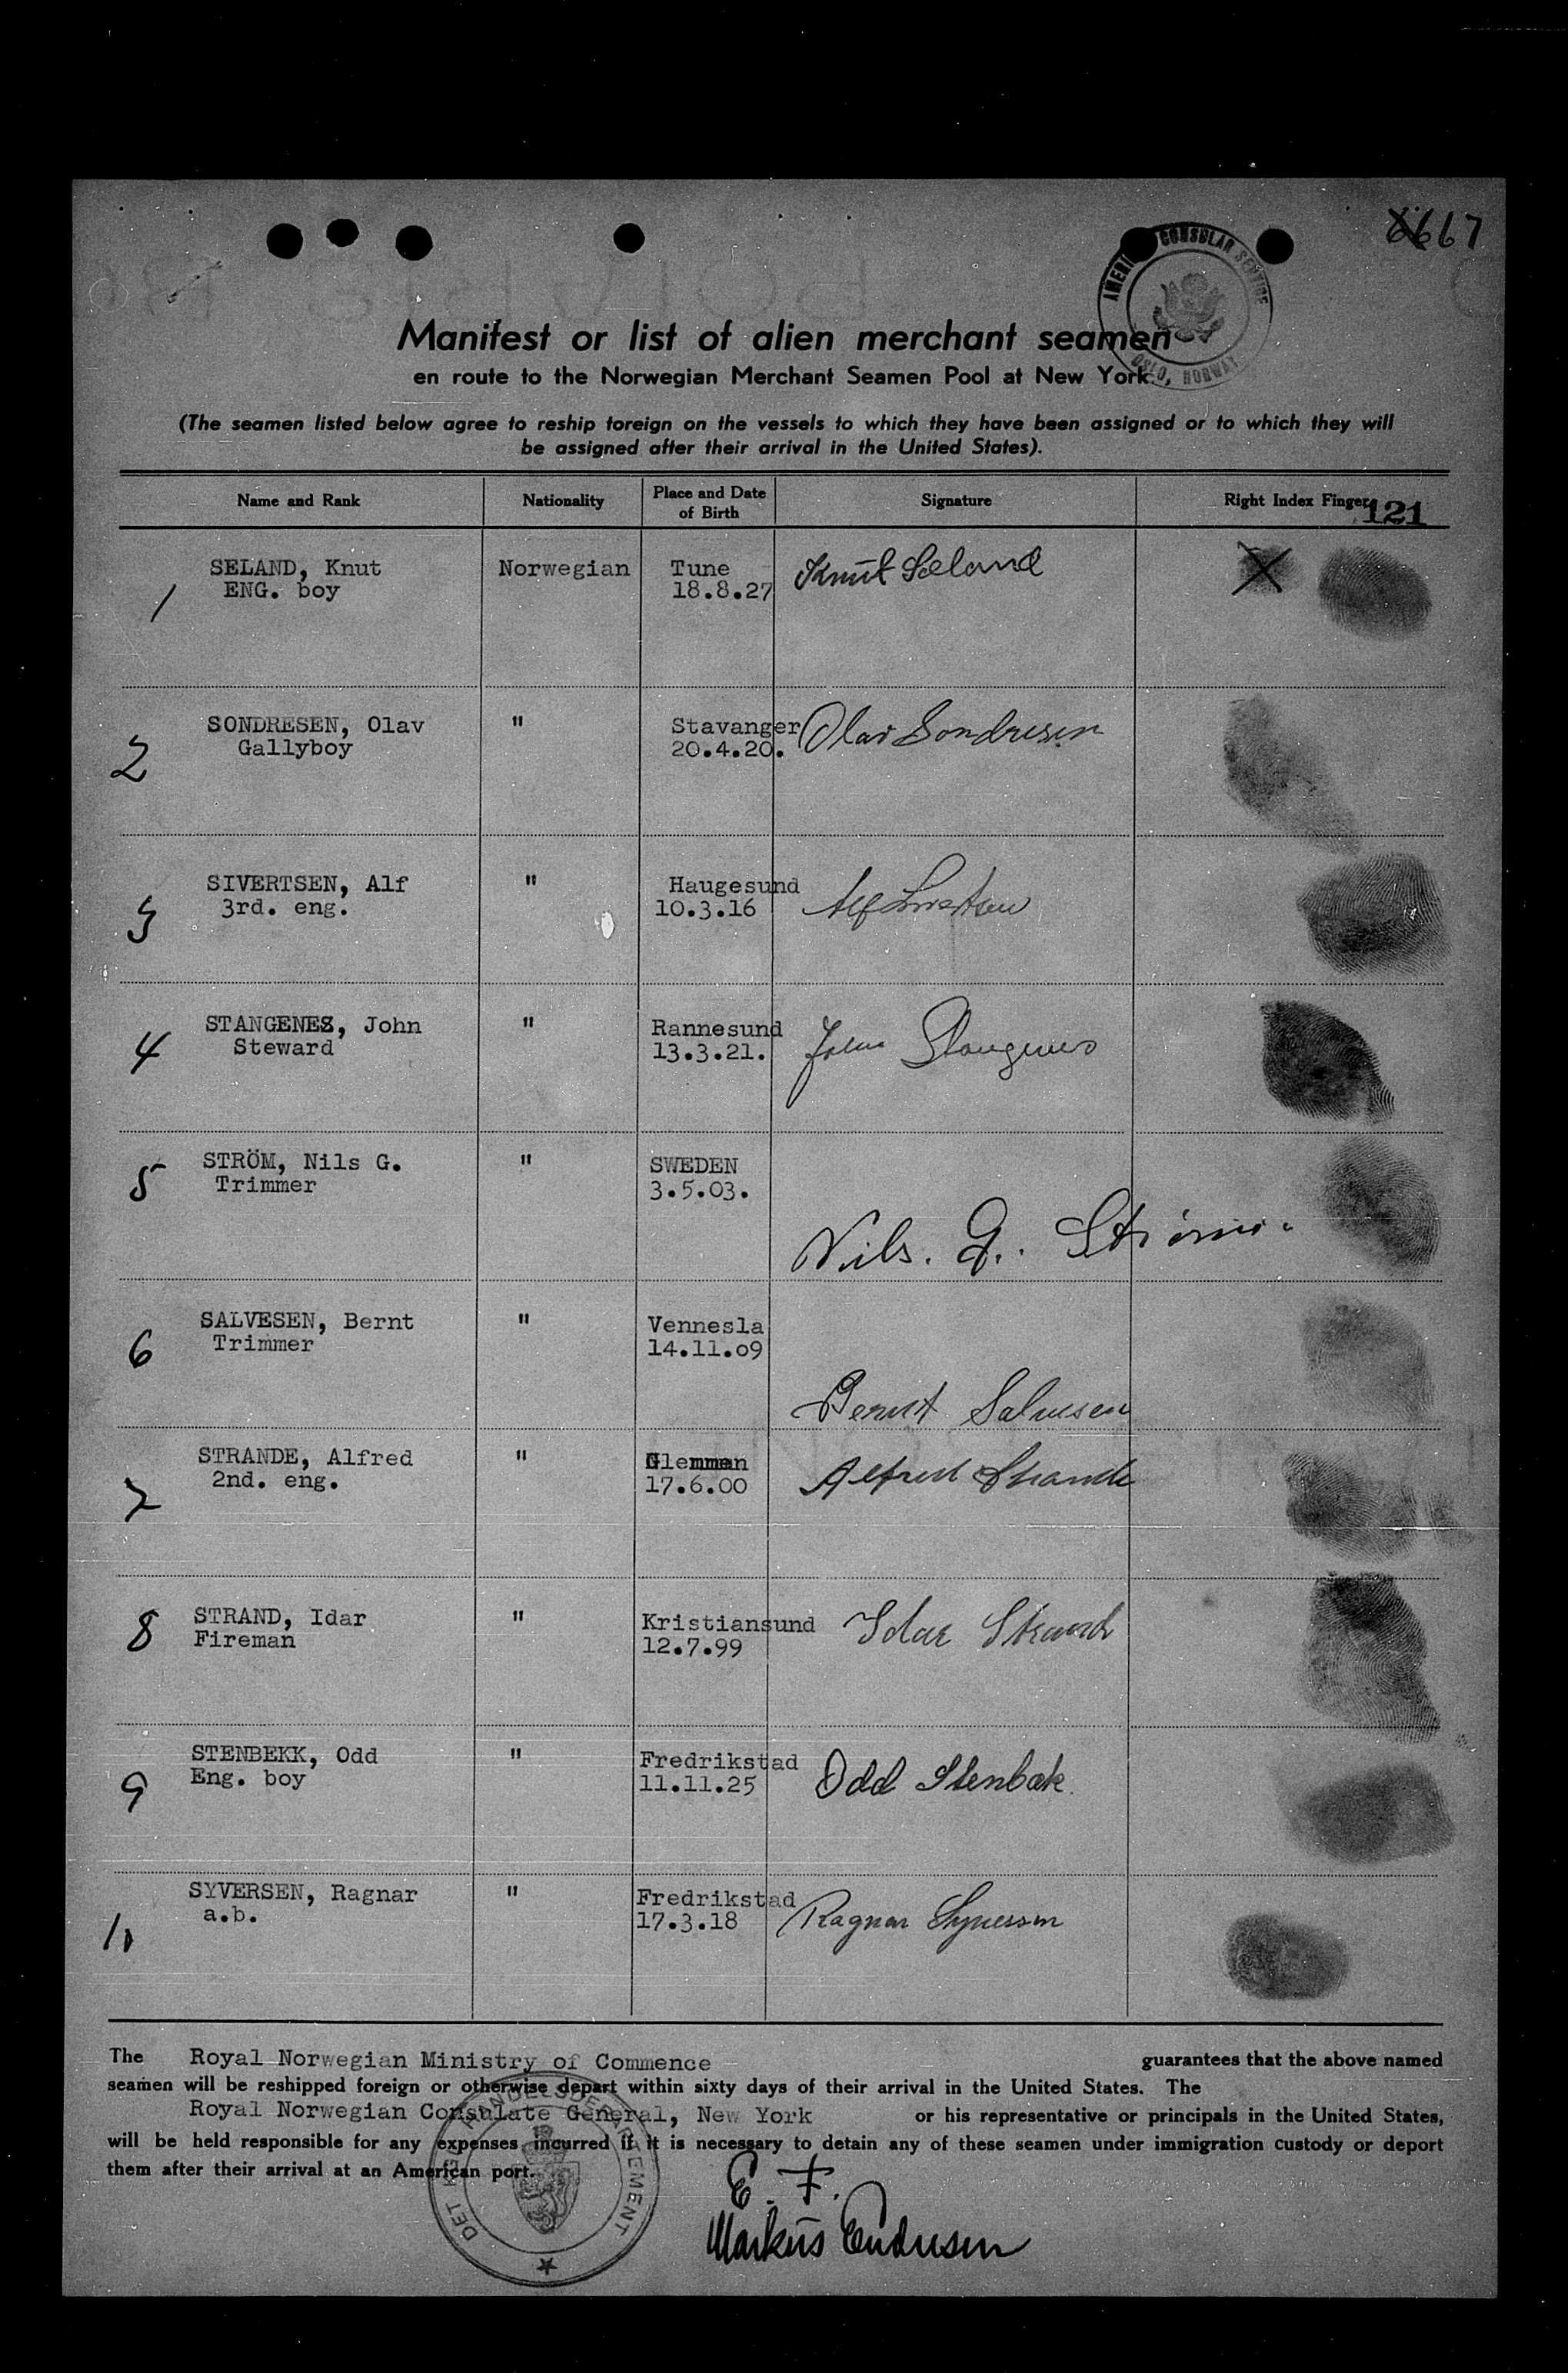 6667
AMERICAN CONSULAR SERVICE
OSLO, NORWAY
Manifest or list of alien merchant seamen
en route to the Norwegian Merchant Seamen Pool at New York.
(The seamen listed below agree to reship foreign on the vessels to which they have been assigned or to which they will
be assigned after their arrival in the United States).
Name and Rank Nationality Place and Date of Birth Signature Right Index Finger
121
1 SELAND, Knut Norwegian Tune Knut Seland
ENG. boy 18.8.27
2 SONDRESEN, Olav " Stavanger Olav Sondresen
Gallyboy 20.4.20.
3 SIVERTSEN, Alf " Haugesund Alf Sivertsen
3rd. eng. 10.3.16
4 STANGENES, John " Rannesund John Stangenes
Steward 13.3.21.
5 STRÖM, Nils G. " SWEDEN
Trimmer 3.5.03.
Nils. G. Ström.
6 SALVESEN, Bernt " Vennesla
Trimmer 14.11.o9
Bernt Salvesen
7 STRANDE, Alfred " Glemmen Alfred Strande
2nd. eng. 17.6.00
8 STRAND, Idar " Kristiansund Idar Strand
Fireman 12.7.99
9 STENBEKK, Odd " Fredrikstad Odd Stenbæk
Eng. boy 11.11.25
10 SYVERSEN, Ragnar " Fredrikstad Ragnar Syversen
a.b. 17.3.18
The Royal Norwegian Ministry of Commence guarantees that the above named
seamen will be reshipped foreign or otherwise depart within sixty days of their arrival in the United States. The
Royal Norwegian Consulate General, New York or his representative or principals in the United States,
will be held responsible for any expenses incurred if it is necessary to detain any of these seamen under immigration custody or deport
them after their arrival at an American port.
E. F.
Markus Endresen
DET KGL. HANDELSDEPARTEMENT